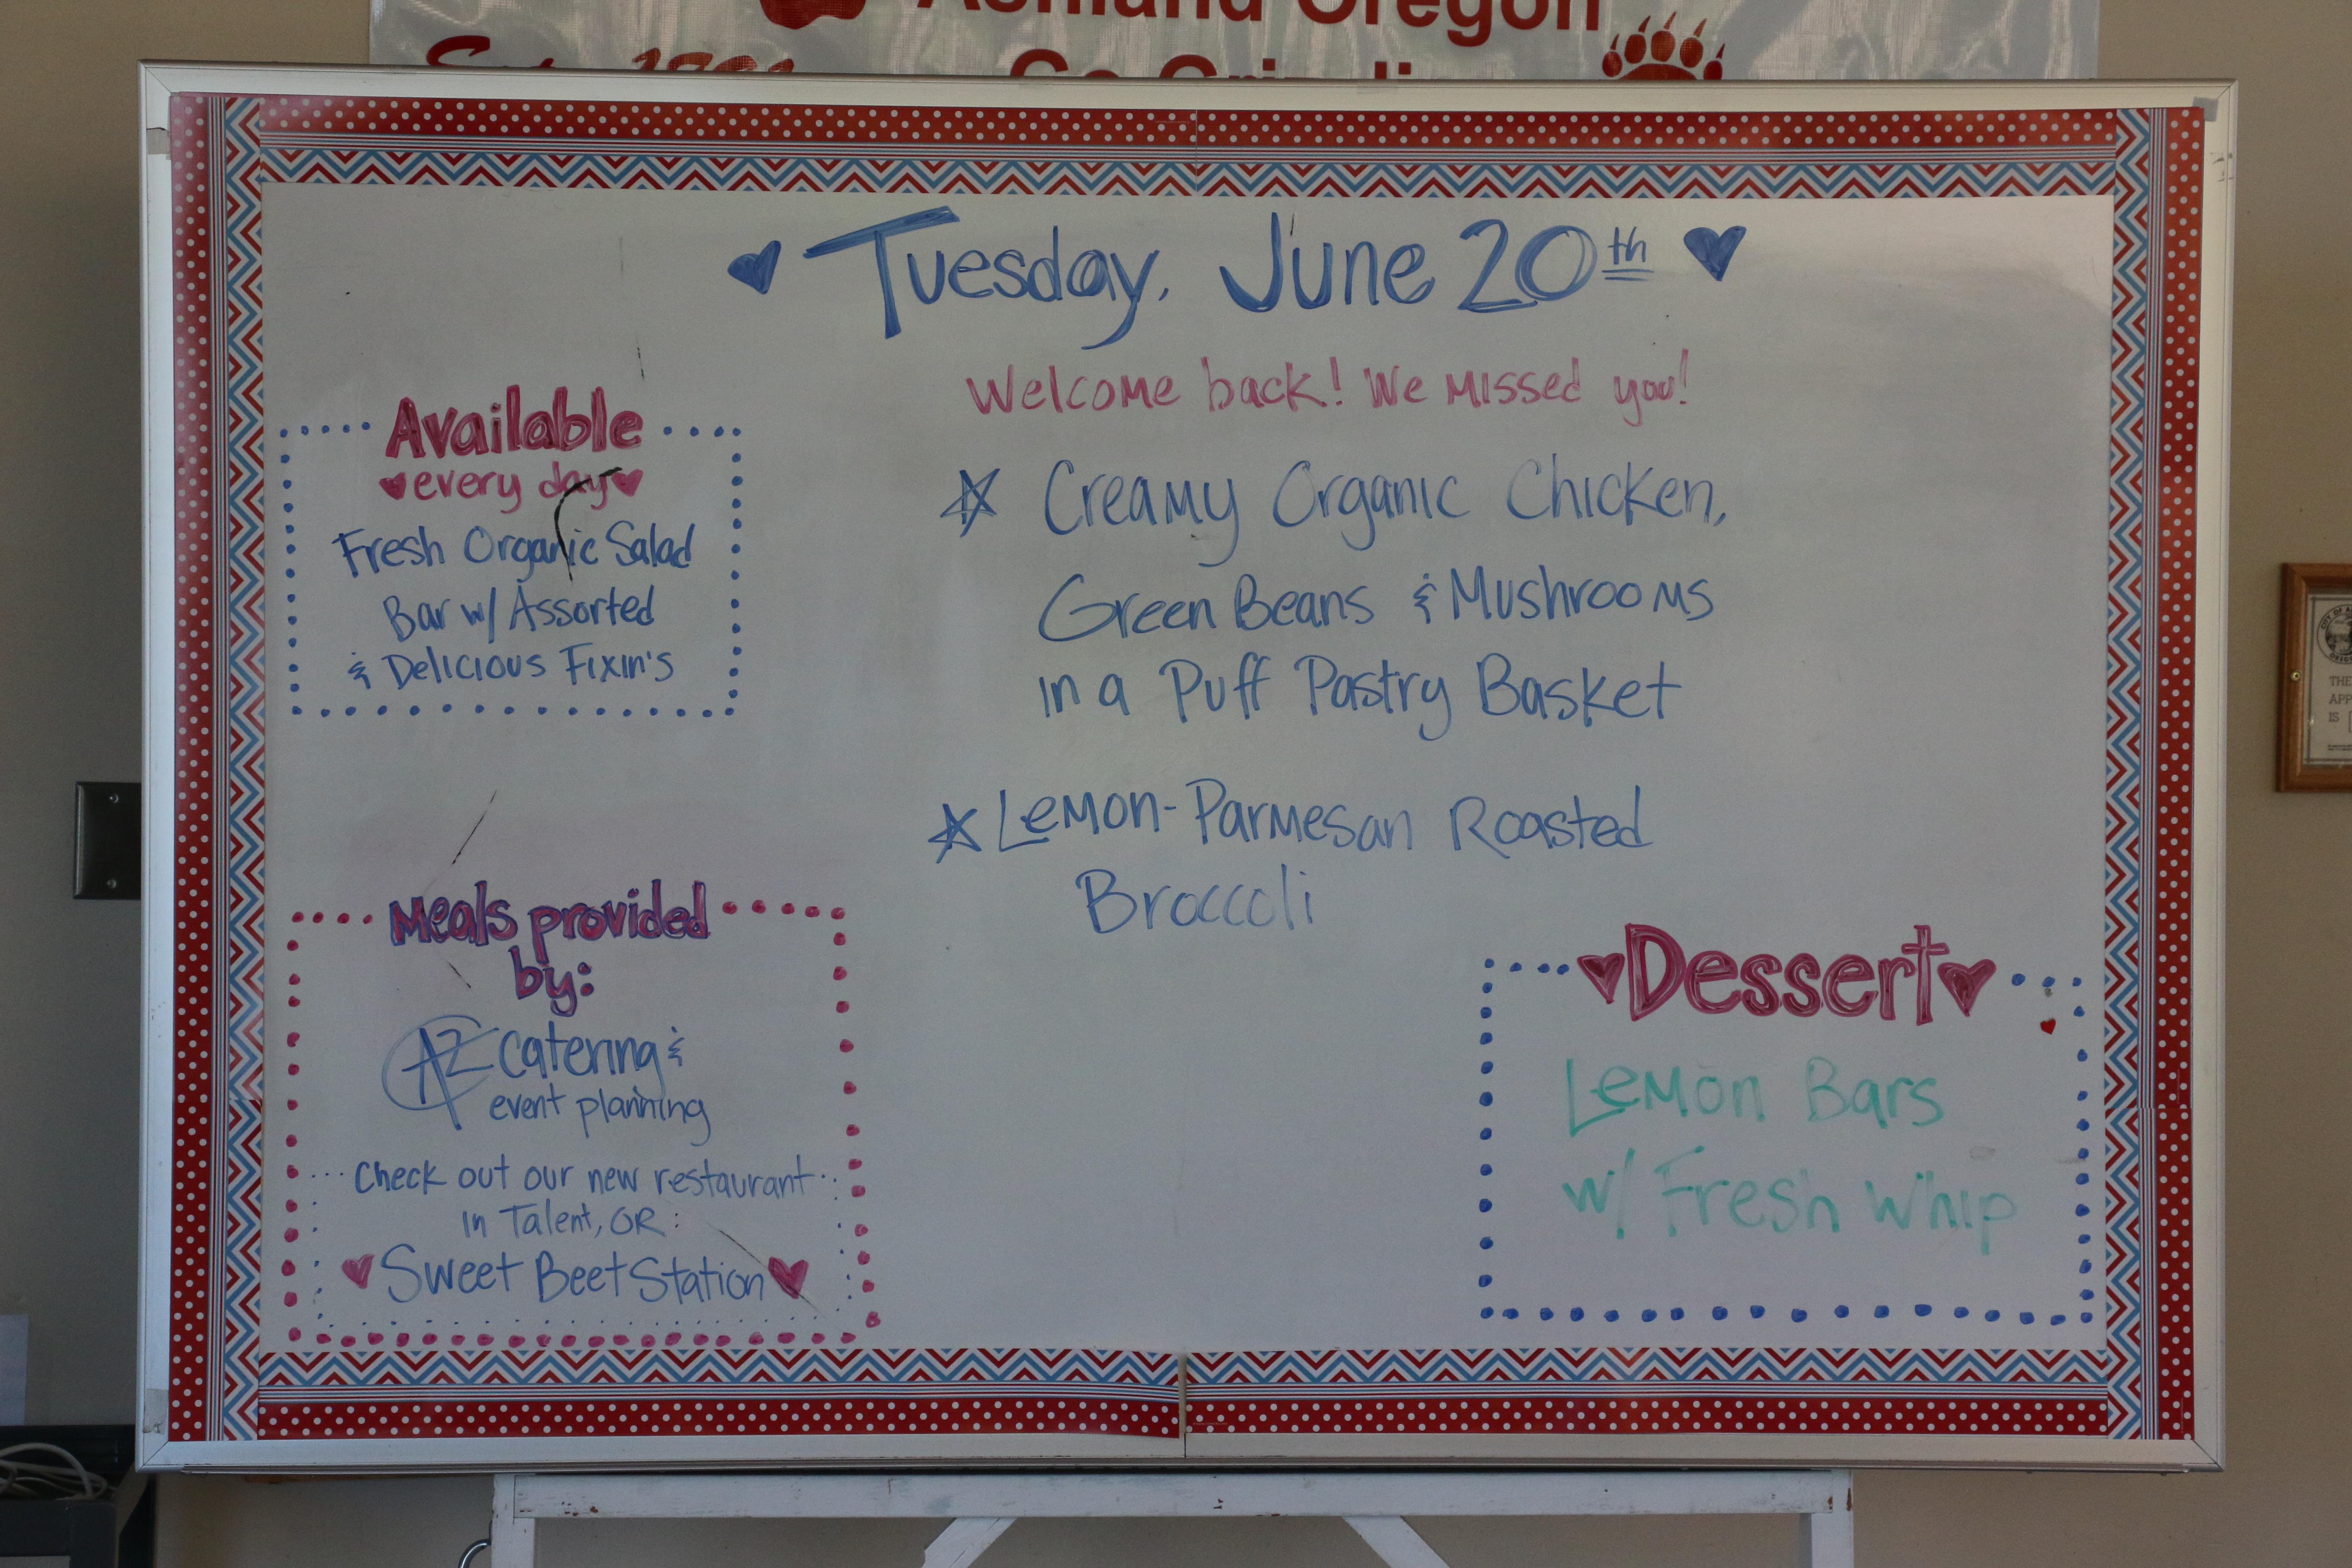 Ashland Oregon
Tuesday, June 20th
Welcome back! We missed you!
Available
every day
Fresh Organic Salad
Bar w/ Assorted
& Delicious Fixin's
Creamy Organic Chicken,
Green Beans & Mushrooms
in a Puff Pastry Basket
Lemon-Parmesan Roasted
Broccoli
Meals provided
by:
AZ catering &
event planning
Check out our new restaurant
in Talent, OR:
Sweet Beet Station
Dessert
Lemon Bars
w/ Fresh Whip
THE
IS